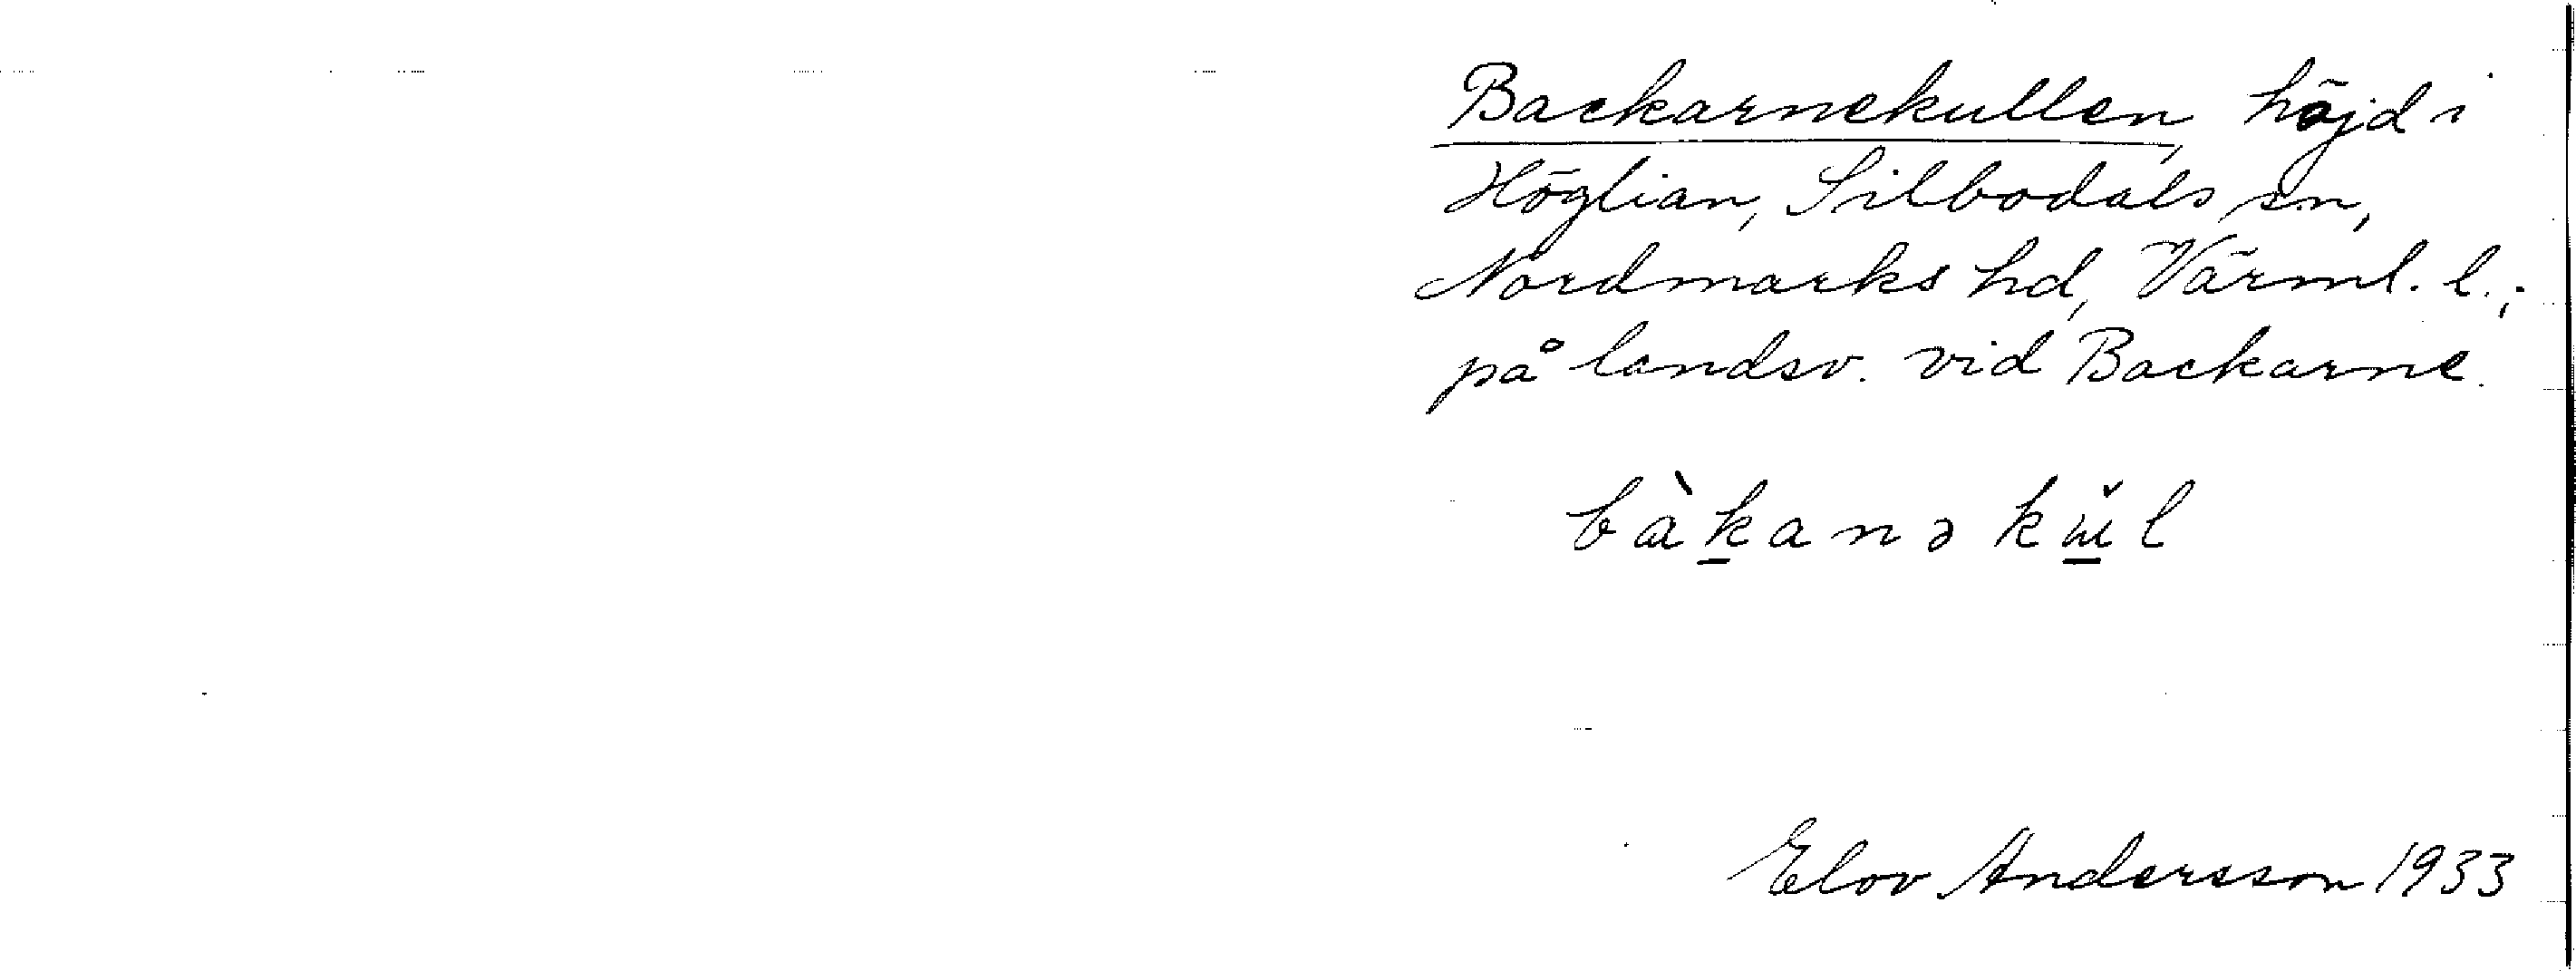 Backarnekullen, höjd i
Höglian, Silbodals sn,
Nordmarks hd, Värml. l.;
på landsv. vid Backarne.
bàk̲anəkʉ̲̌l
Elov Andersson 1933